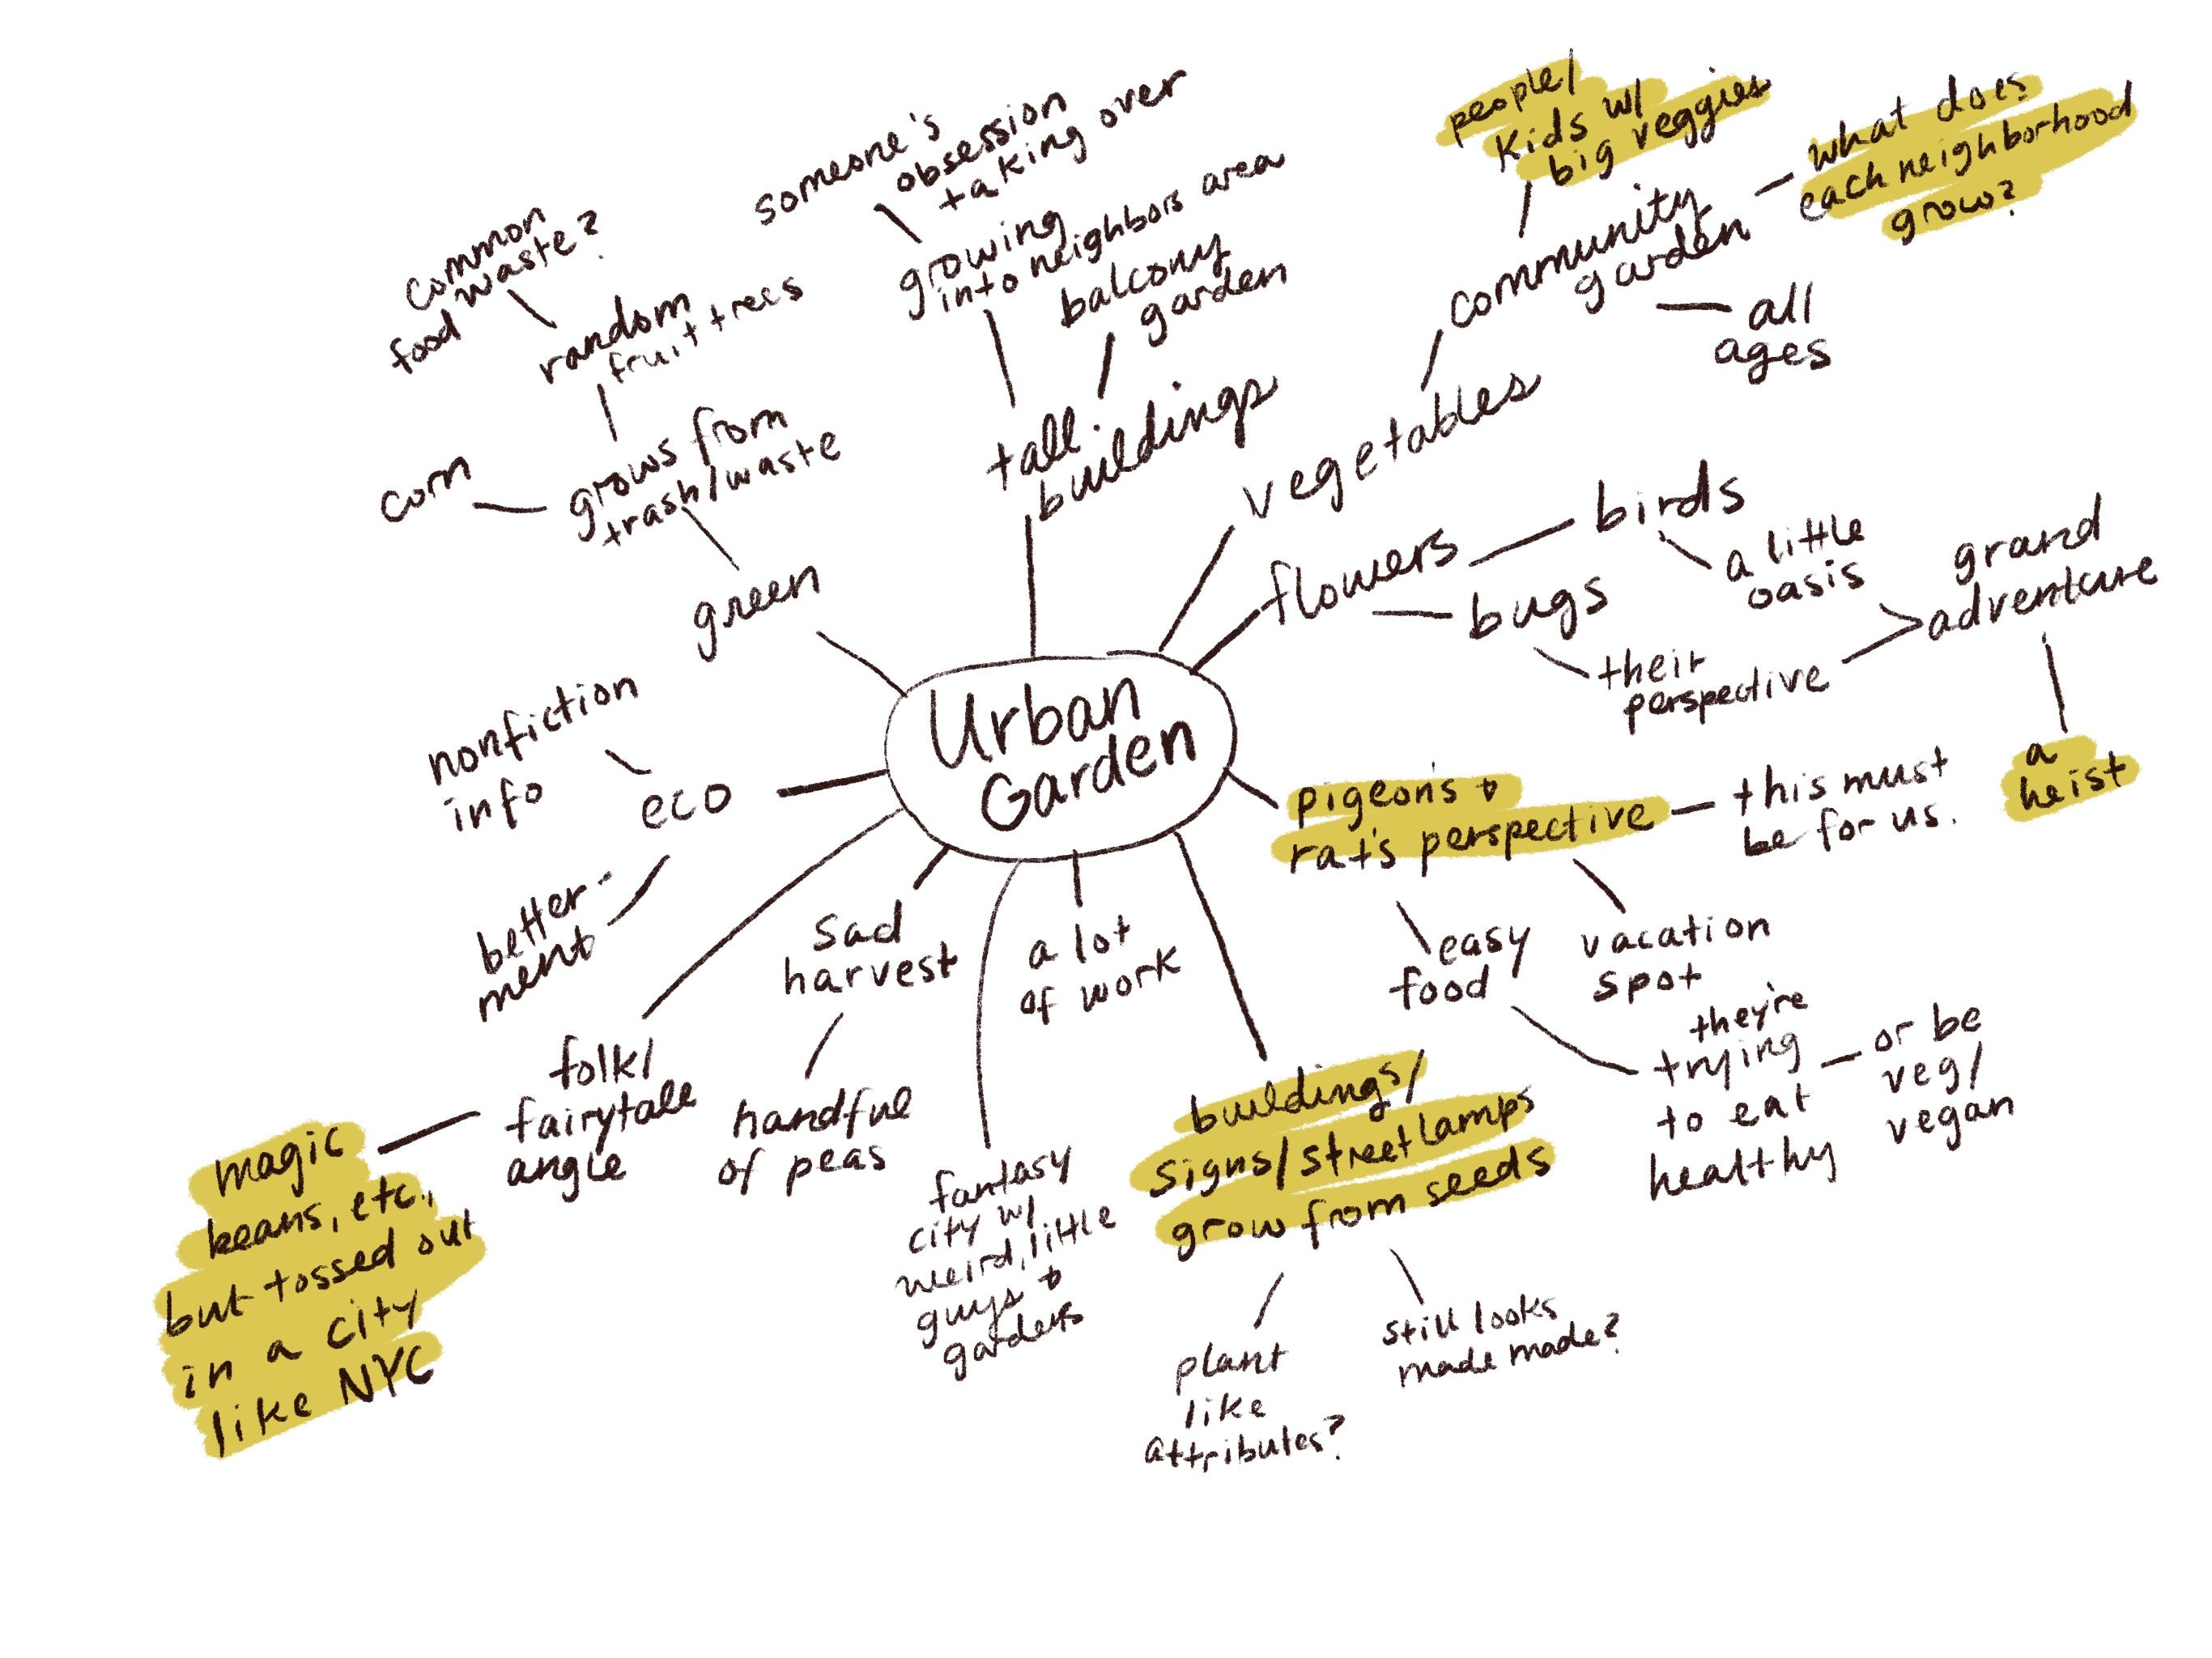 Urban
Garden
tall
buildings
balcony
garden
growing
into neighbors area
someone's
obsession
taking over
vegetables
community
garden
people/
kids w/
big veggies
what does
each neighborhood
grow?
all
ages
flowers
birds
a little
oasis
bugs
their
perspective
grand
adventure
a
heist
pigeon's +
rat's perspective
this must
be for us.
vacation
spot
easy
food
they're
trying
to eat
healthy
or be
veg/
vegan
buildings/
signs/streetlamps
grow from seeds
still looks
made made?
plant
like
attributes?
a lot
of work
fantasy
city w/
weird, little
guys +
gardens
sad
harvest
handful
of peas
folk/
fairytale
angle
magic
beans, etc.,
but tossed out
in a city
like NYC
eco
better-
ment
nonfiction
info
green
grows from
trash/waste
corn
random
fruit trees
common
food waste?